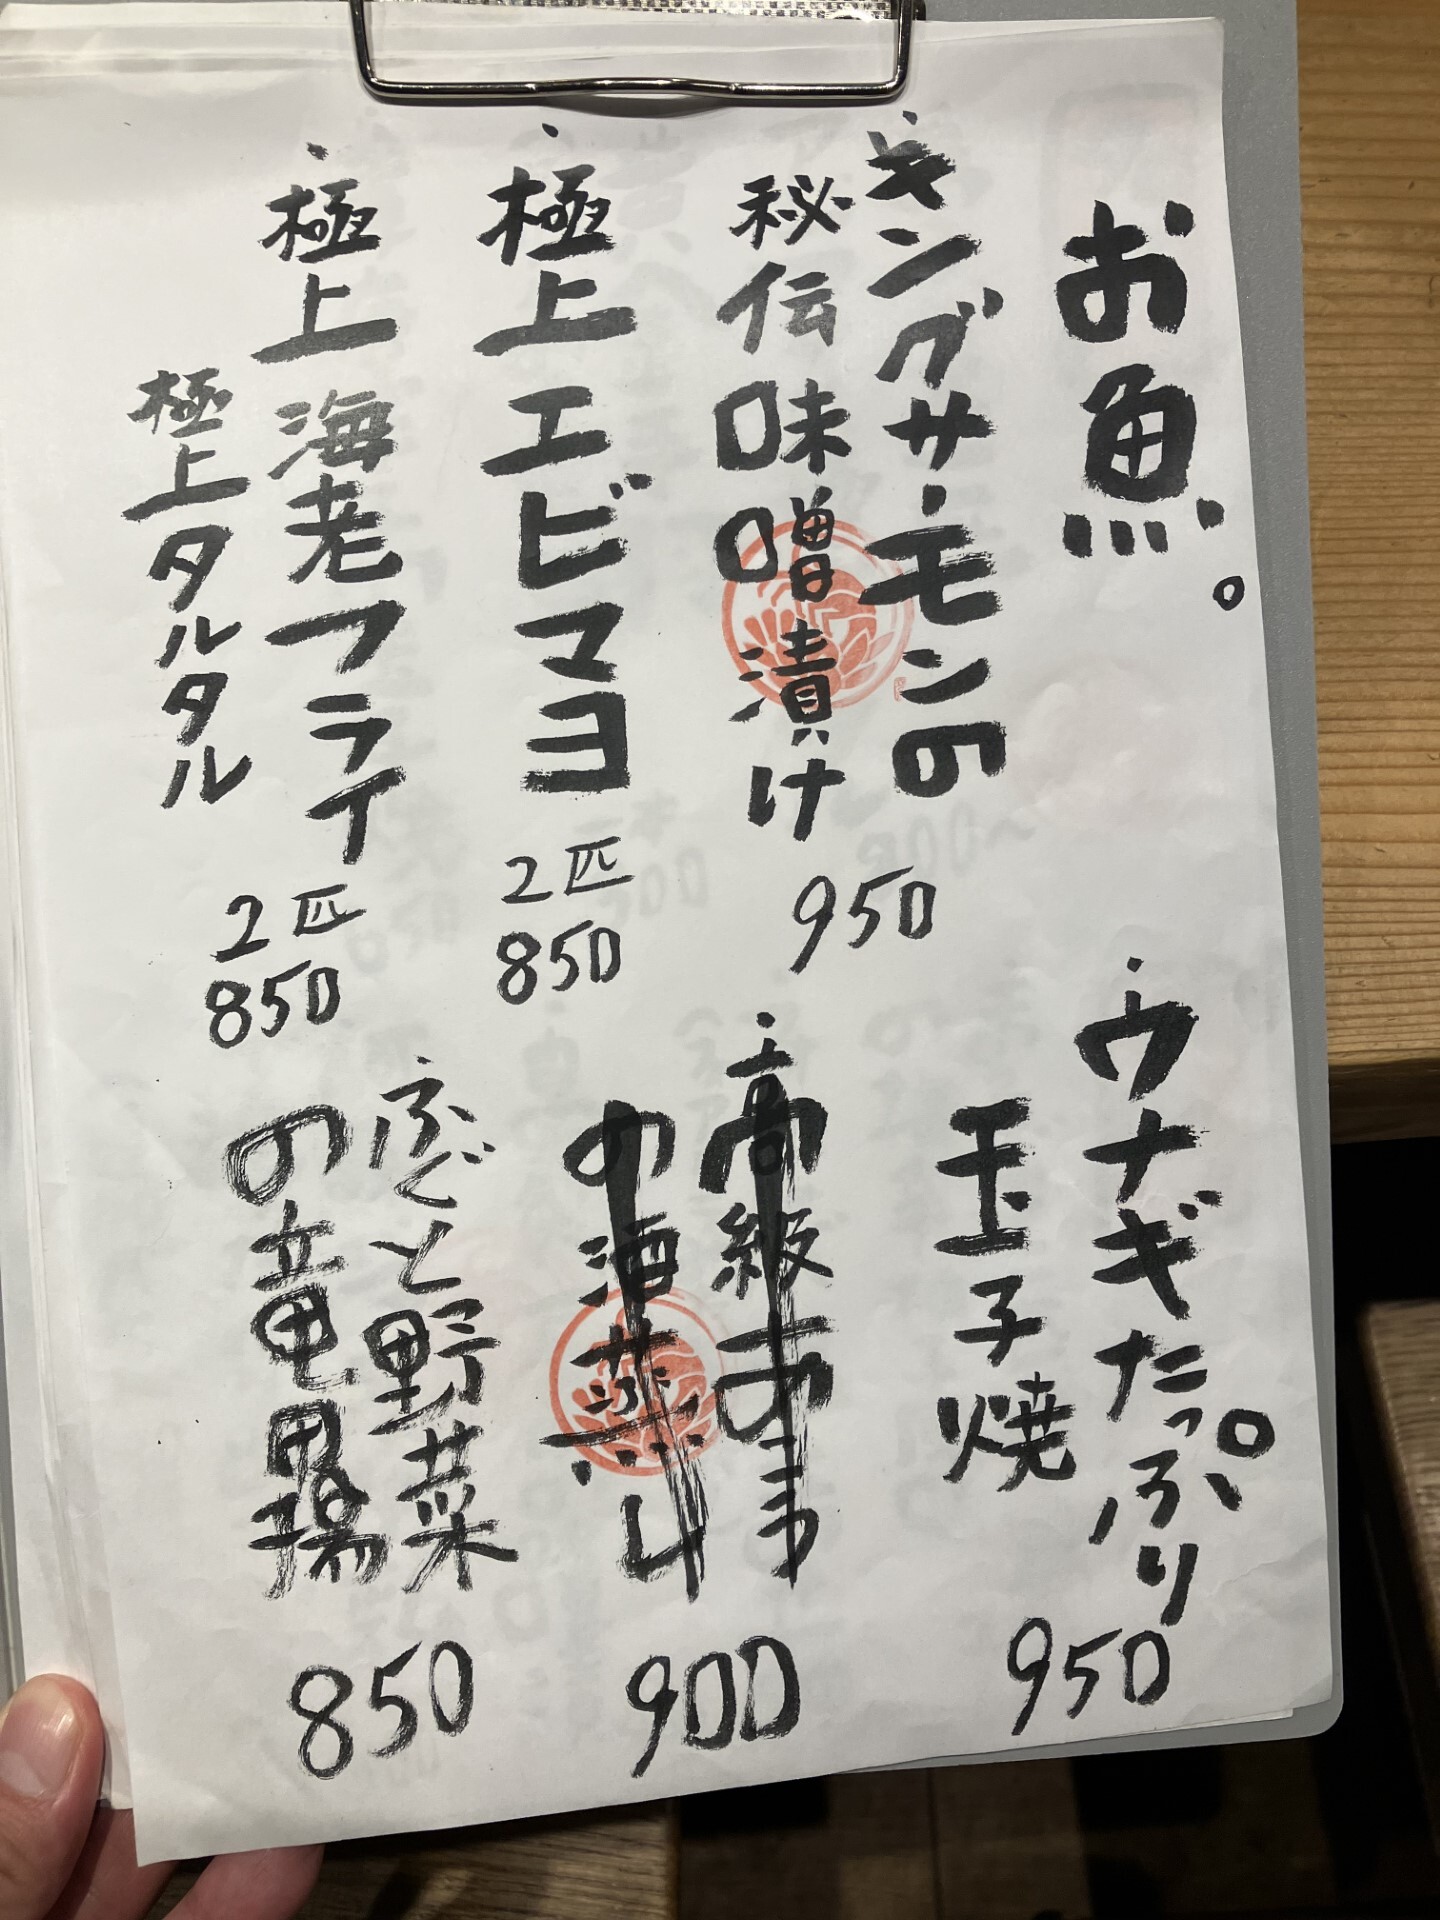 お魚。
・キングサーモンの
秘伝味噌漬け
950
・極上エビマヨ
2匹
850
・極上海老フライ
極上タルタル
2匹
850
・ウナギたっぷり
玉子焼
950
・高級
の酒蒸し
900
・ふぐと野菜
の竜田揚
850